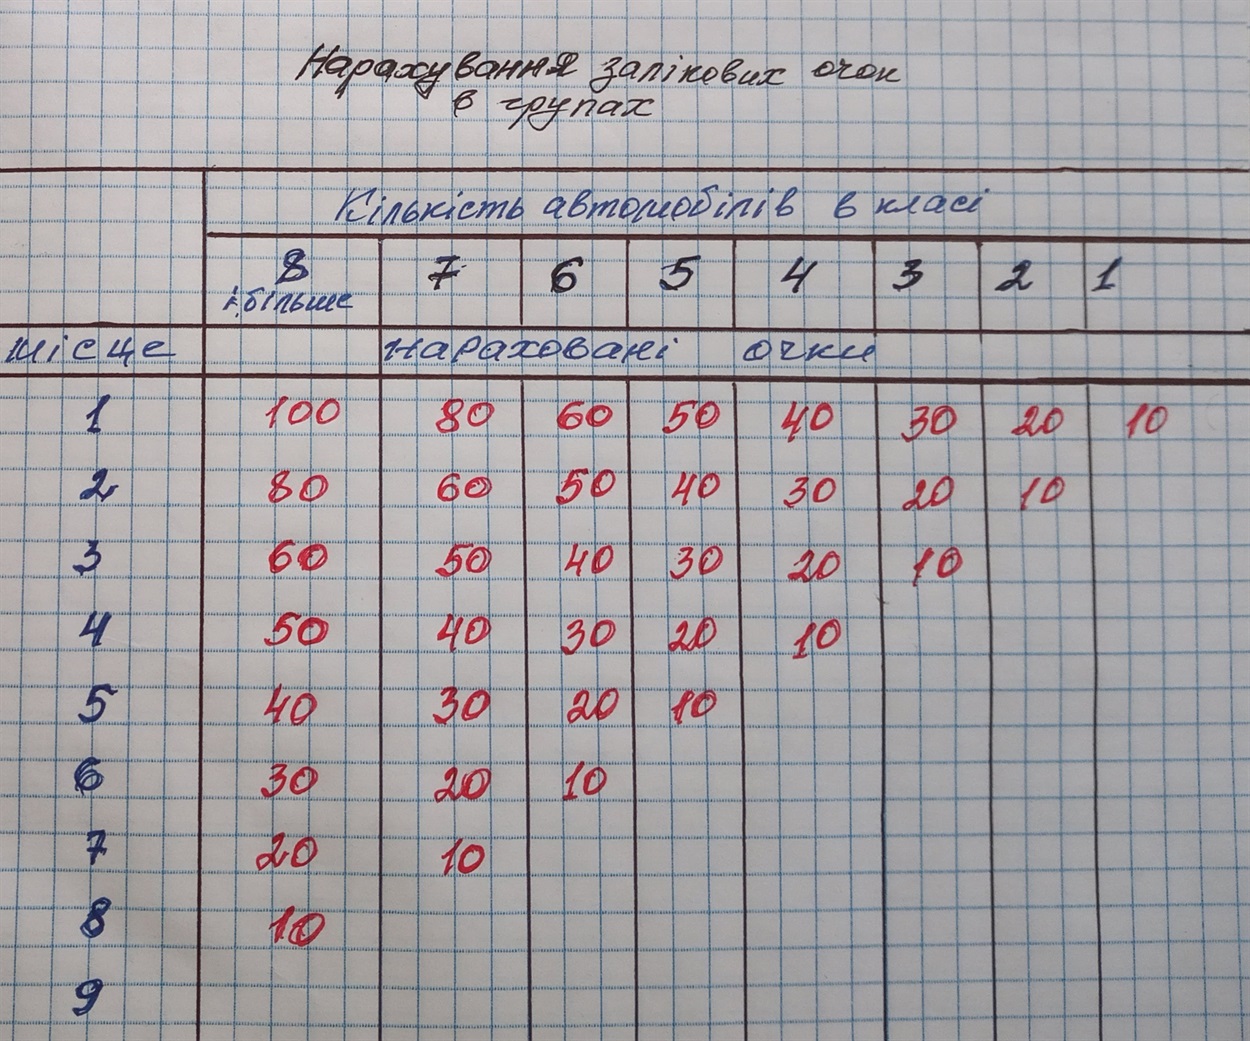 Нарахування залікових очок
в групах
Кількість автомобілів в класі
8 7 6 5 4 3 2 1
і більше
місце нараховані очки
1 100 80 60 50 40 30 20 10
2 80 60 50 40 30 20 10
3 60 50 40 30 20 10
4 50 40 30 20 10
5 40 30 20 10
6 30 20 10
7 20 10
8 10
9